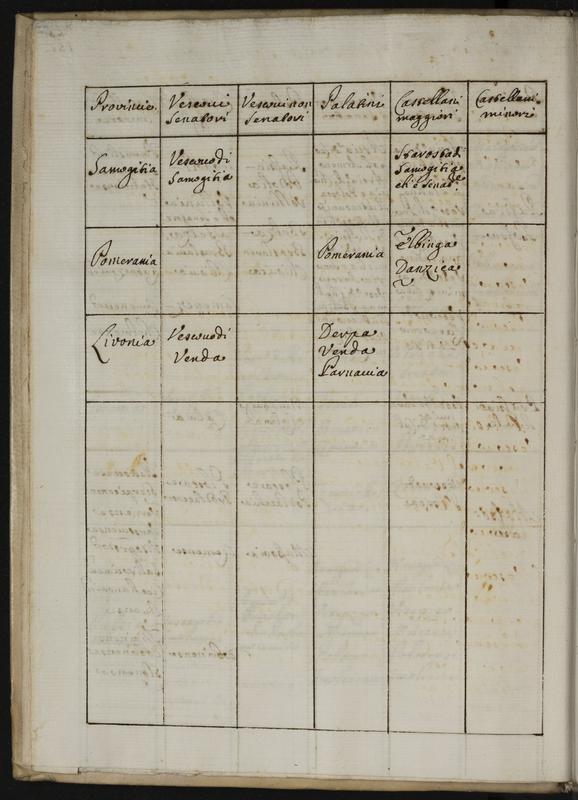 Provincie
Vescovi
Senatori
Vescovi non
Senatori
Palatini
Castellani
maggiori
Castellani
minori
Samogitia
Vescovo di
Samogitia
Starosta di
Samogitia
ch'è Senat.re
Pomerania
Pomerania
Elbinga
Danzica
Livonia
Vescovo di
Venda
Derpa
Venda
Parnavia